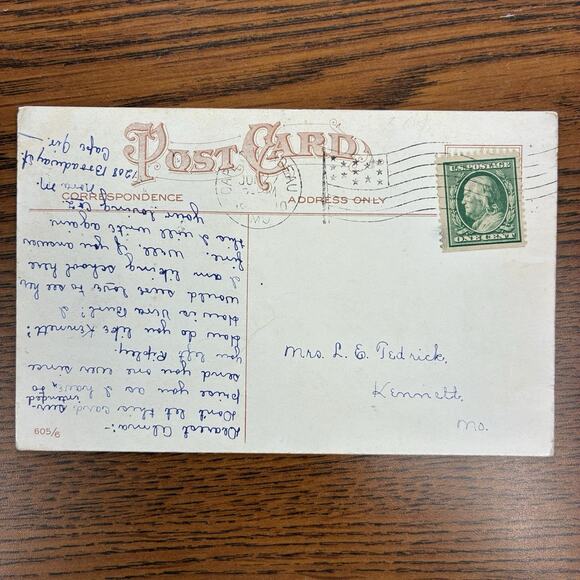 POST CARD
CORRESPONDENCE
ADDRESS ONLY
U.S. POSTAGE
ONE CENT
CAPE GIRARDEAU
JUL
10
MO.
Mrs. L. E. Tedrick,
Kennett,
Mo.
Dearest Alma:-
Don't let this card sur-
prise you as I have intended to
send you one ever since
you left Ripley.
How do you like Kennett?
How is Vira Burl? I
would sure love to see her
I am liking school here
fine. Well, if you answer
this I will write again
your loving
Nora M.
1208 Broadway St
Cape Gir.
605/6